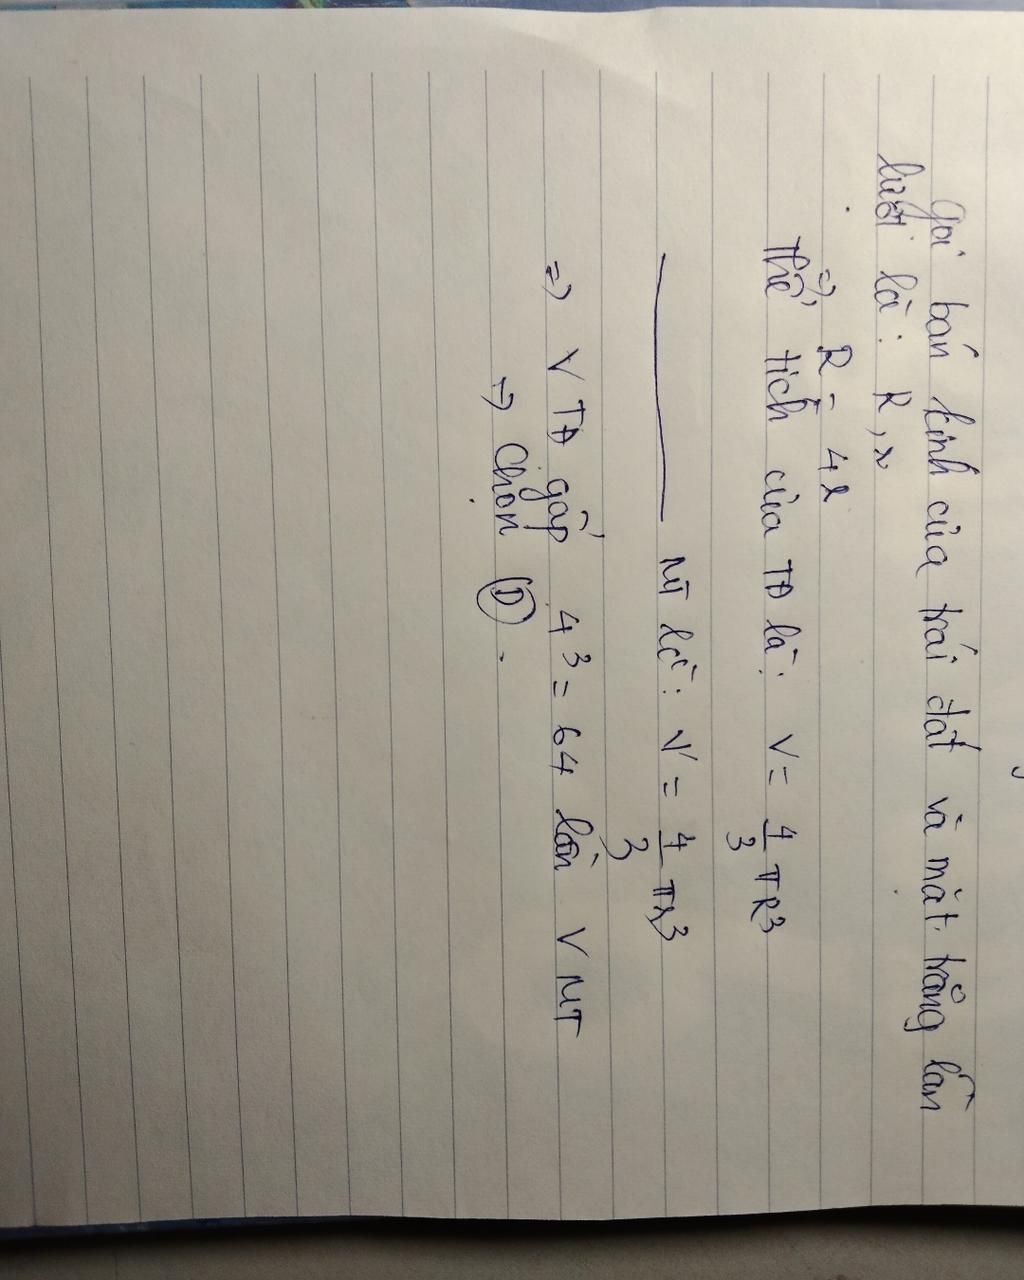 Gọi bán kính của trái đất và mặt trăng lần
lượt là: R, r
=> R = 4r
Thể tích của TĐ là: V = 4/3 πR³
MT là: V' = 4/3 πr³
=> V TĐ gấp 4³ = 64 lần V MT
=> Chọn D.